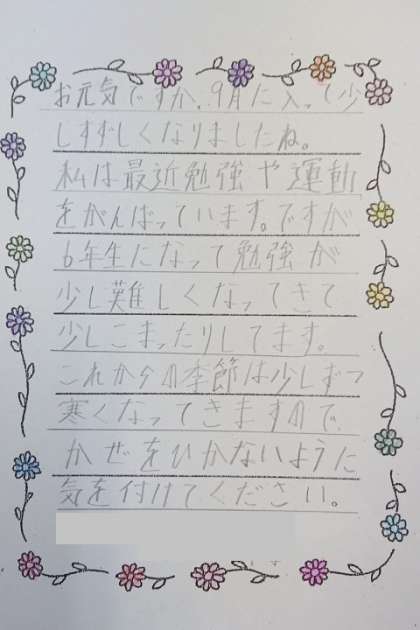 お元気ですか。9月に入って少
しすずしくなりましたね。
私は最近勉強や運動
をがんばっています。ですが
6年生になって勉強が
少し難しくなってきて
少しこまったりしてます。
これからの季節は少しずつ
寒くなってきますので、
かぜをひかないように
気を付けてください。